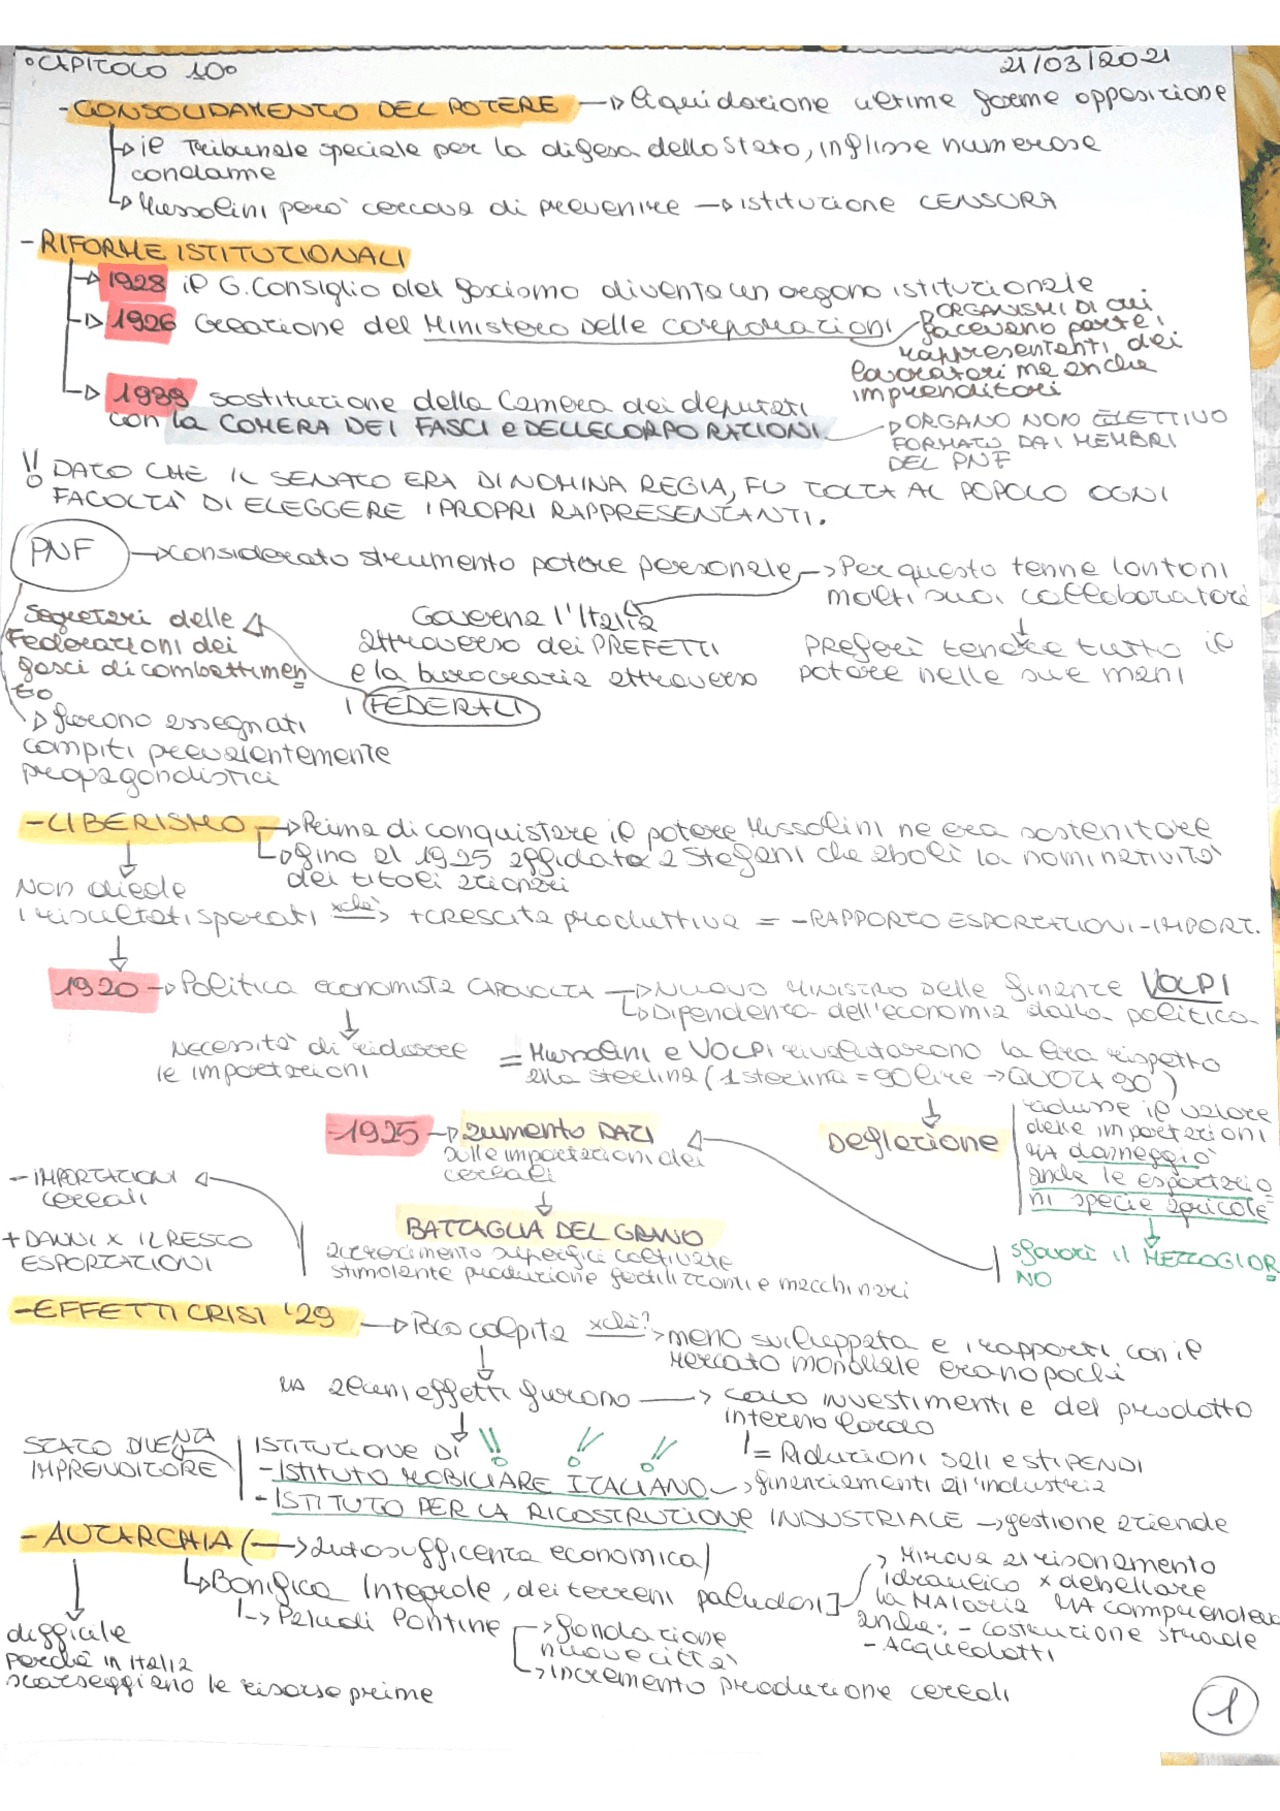 °CAPITOLO 10°
21/03/2021
- CONSOLIDAMENTO DEL POTERE → liquidazione ultime forme opposizione
→ il Tribunale speciale per la difesa dello Stato, inflisse numerose
condanne
→ Mussolini però cercava di prevenire → istituzione CENSURA
- RIFORME ISTITUZIONALI
→ 1928 il G. Consiglio del fascismo diventa un organo istituzionale
→ 1926 Creazione del Ministero delle corporazioni
→ ORGANISMI DI cui
facevano parte i
rappresentanti dei
lavoratori ma anche
imprenditori
→ 1939 sostituzione della Camera dei deputati
con la CAMERA DEI FASCI e DELLE CORPORAZIONI
→ ORGANO NON ELETTIVO
FORMATO DAI MEMBRI
DEL PNF
!! DATO CHE IL SENATO ERA DI NOMINA REGIA, FU TOLTA AL POPOLO OGNI
FACOLTÀ DI ELEGGERE I PROPRI RAPPRESENTANTI.
PNF → considerato strumento potere personale → Per questo tenne lontani
molti suoi collaboratori
Preferì tenere tutto il
potere nelle sue mani
Governa l'Italia
attraverso dei PREFETTI
e la burocrazia attraverso
i FEDERALI
Segretari delle
Federazioni dei
fasci di combattimen
to
→ furono assegnati
compiti prevalentemente
propagandistici
- LIBERISMO → Prima di conquistare il potere Mussolini ne era sostenitore
→ fino al 1925 affidata a Stefani che abolì la nominatività
dei titoli azionari
Non diede
i risultati sperati xchè → + CRESCITA produttiva = - RAPPORTO ESPORTAZIONI - IMPORT.
1920 → Politica economista CAPOVOLTA → NUOVO MINISTRO delle finanze VOLPI
→ Dipendenza dell'economia dalla politica
Necessità di ridurre
le importazioni
= Mussolini e VOLPI rivalutarono la lira rispetto
alla sterlina (1 sterlina = 90 lire → QUOTA 90)
Deflazione
ridusse il valore
delle importazioni
MA danneggiò
anche le esportazio
ni specie agricole
sfavorì il MEZZOGIOR
NO
- 1925 → aumento DAZI
sulle importazioni dei
cereali
BATTAGLIA DEL GRANO
accrescimento superfici coltivate
stimolante produzione fertilizzanti e macchinari
- IMPORTAZIONI
cereali
+ DANNI X IL RESTO
ESPORTAZIONI
- EFFETTI CRISI '29 → Poco colpita xchè? → meno sviluppata e i rapporti con il
Mercato mondiale erano pochi
MA alcuni effetti furono → calo investimenti e del prodotto
interno lordo
= Riduzioni sali e STIPENDI
STATO DIVENTA
IMPRENDITORE
ISTITUZIONE DI !! ! !
- ISTITUTO MOBILIARE ITALIANO → finanziamenti all'industria
- ISTITUTO PER LA RICOSTRUZIONE INDUSTRIALE → gestione aziende
- AUTARCHIA (→ autosufficenza economica)
→ Bonifica Integrale, dei terreni paludosi]
→ Paludi Pontine → fondazione
nuove città
→ incremento produzione cereali
→ Mirava al risanamento
idraulico x debellare
la MAlaria MA comprendeva
anche: - costruzione strade
- Acquedotti
difficile
perchè in Italia
scarseggiano le risorse prime
1